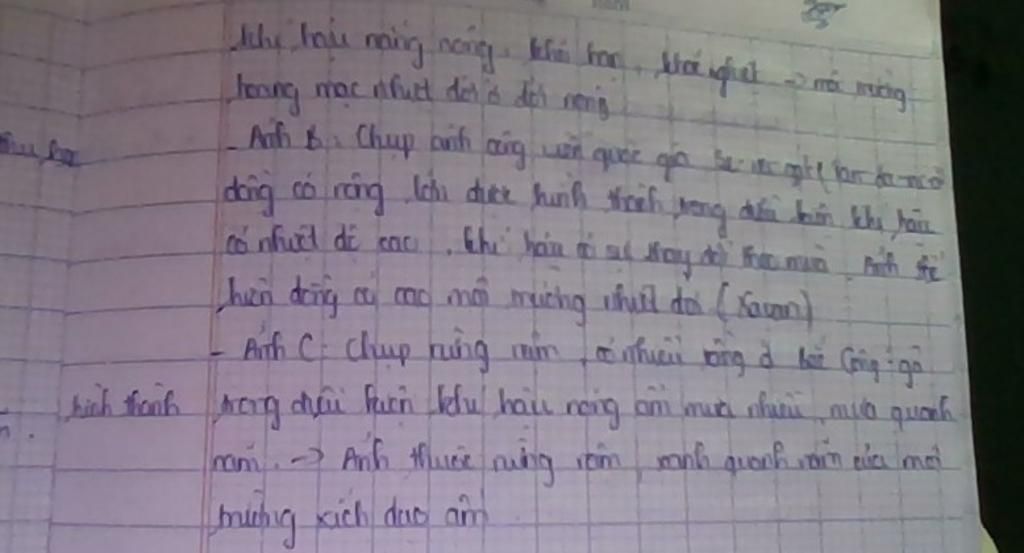 khí hậu nắng nóng, khô hạn, khắc nghiệt -> môi trường
hoang mạc nhiệt đới ở đới nóng
- Ảnh B: Chụp ảnh công viên quốc gia
đồng cỏ rộng lớn được hình thành trong điều kiện khí hậu
có nhiệt độ cao, khí hậu có sự thay đổi theo mùa. Ảnh thể
hiện đồng cỏ cao môi trường nhiệt đới (Xavan)
- Ảnh C: Chụp rừng rậm, có nhiều tầng ở Bắc Công-gô
hình thành trong điều kiện khí hậu nóng ẩm mưa nhiều, mưa quanh
năm. -> Ảnh thuộc rừng rậm, xanh quanh năm của môi
trường xích đạo ẩm